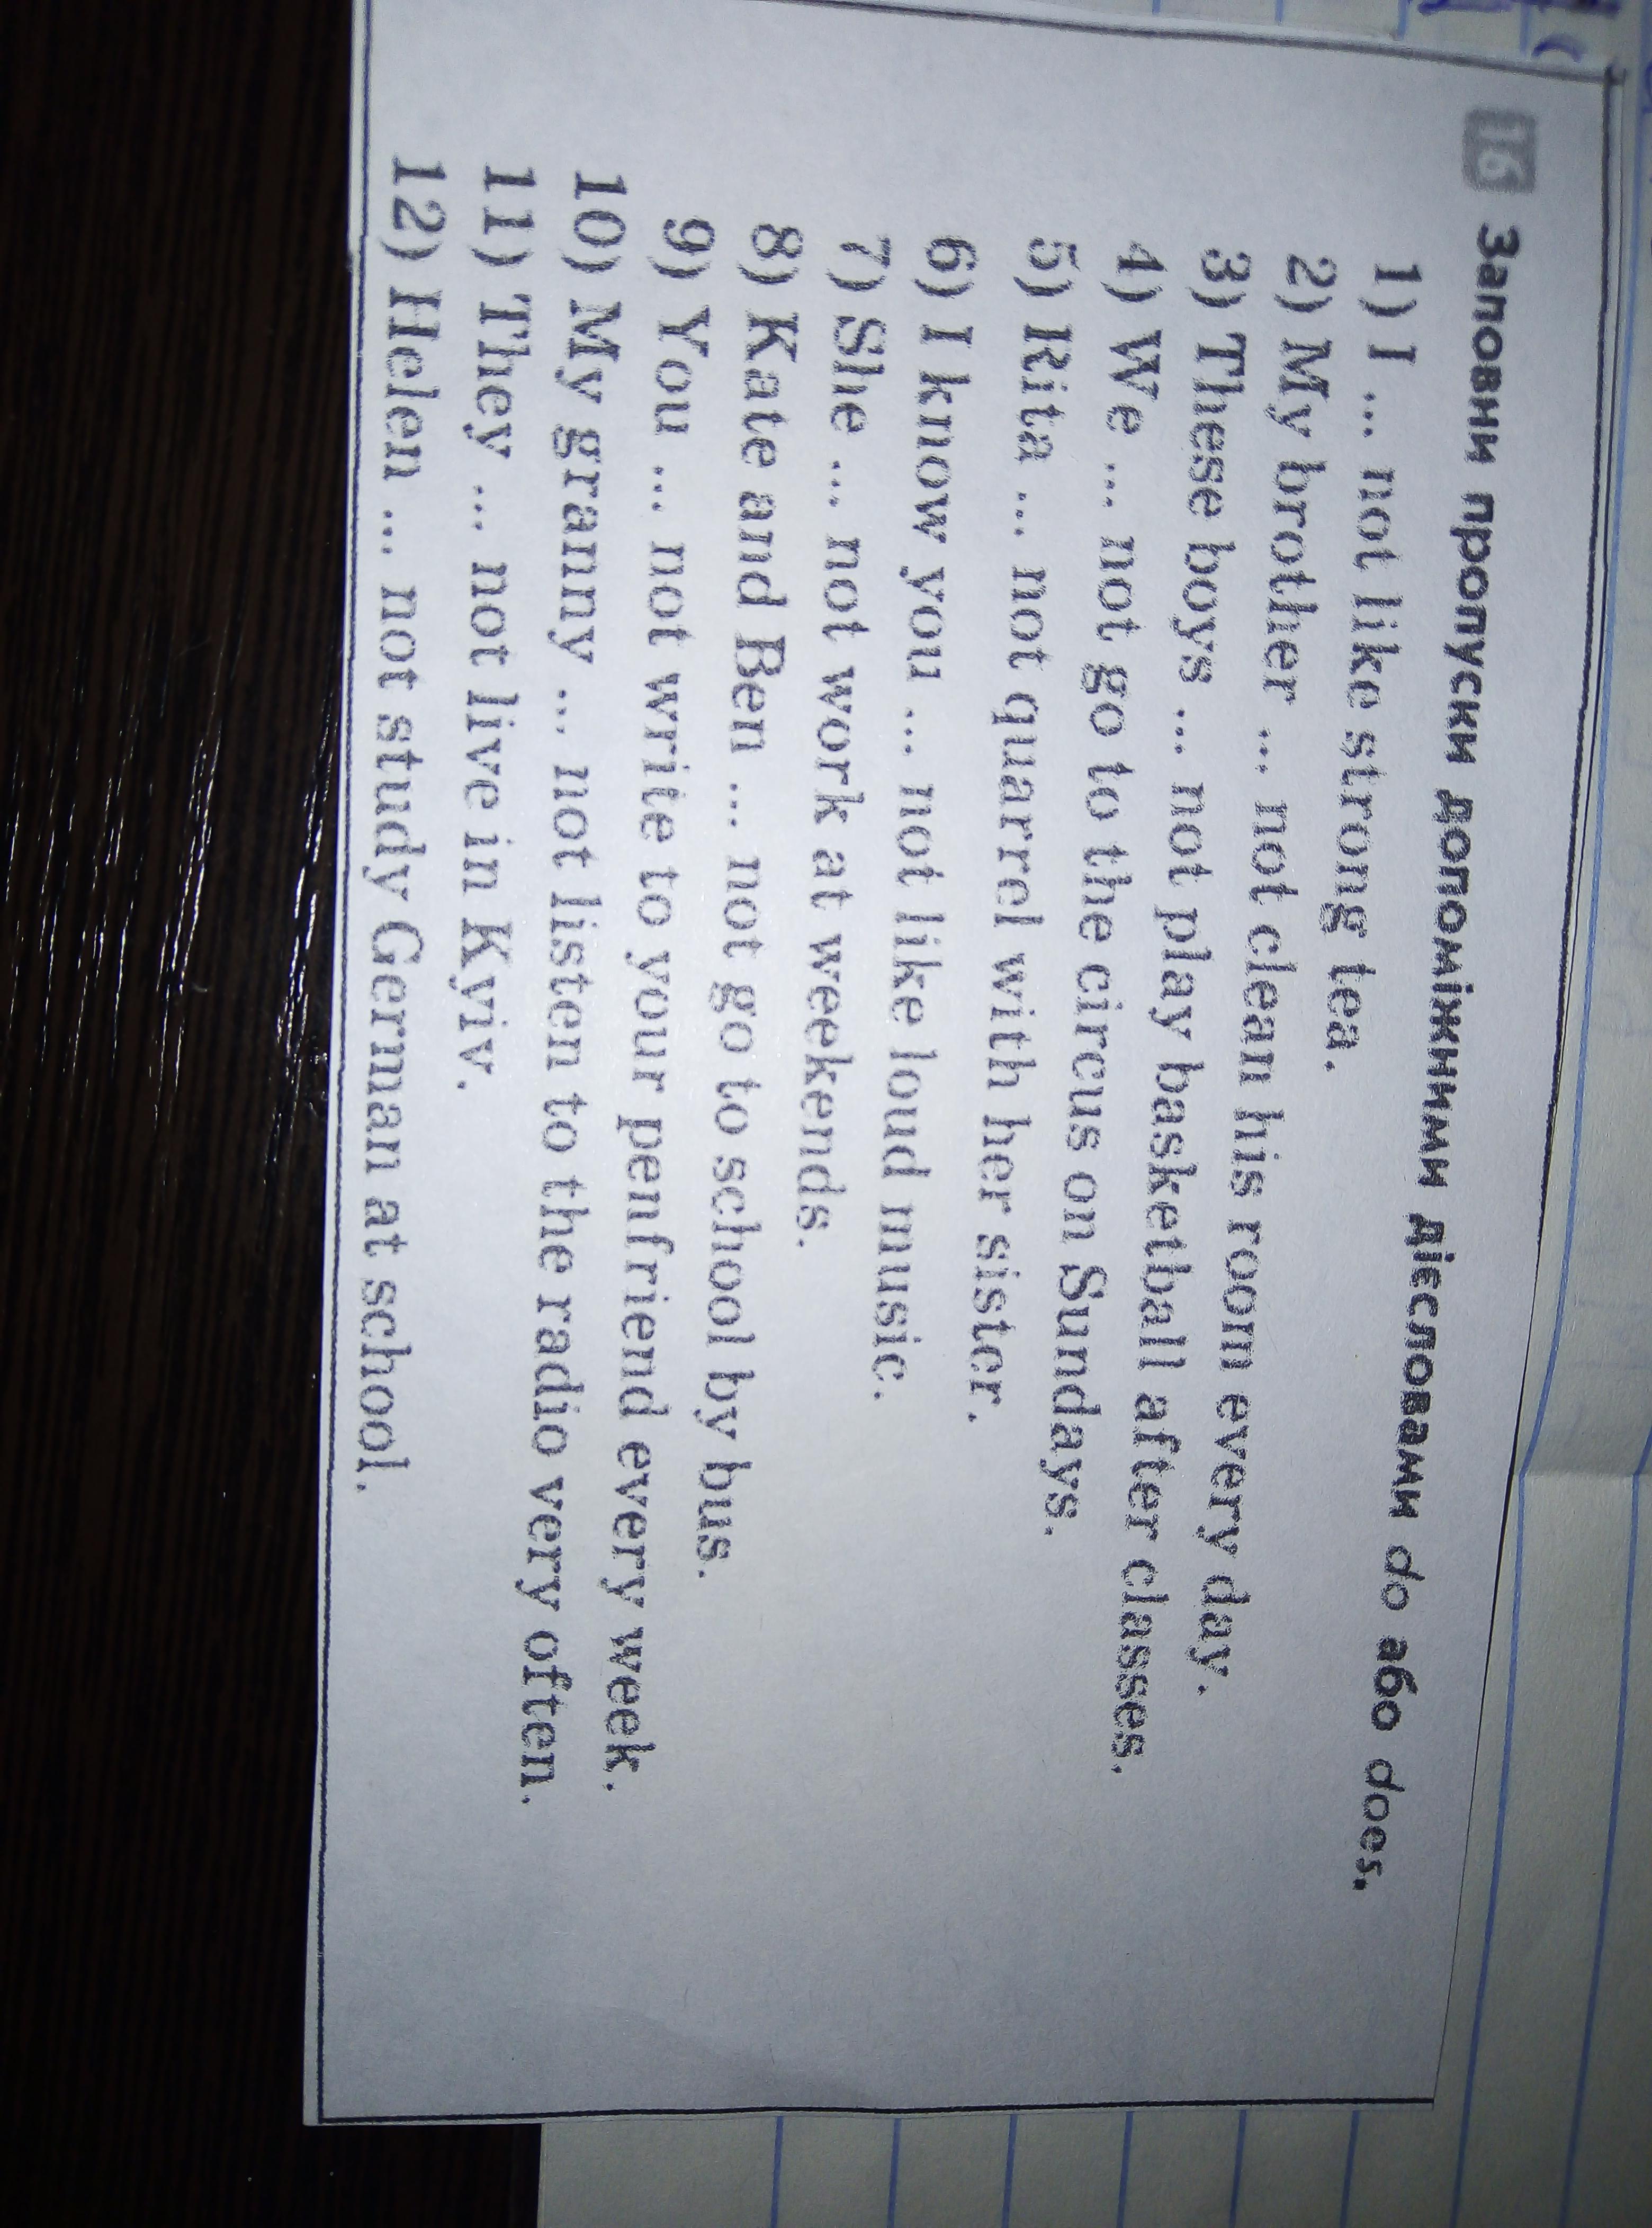 16 Заповни пропуски допоміжними дієсловами do або does.
1) I ... not like strong tea.
2) My brother ... not clean his room every day.
3) These boys ... not play basketball after classes.
4) We ... not go to the circus on Sundays.
5) Rita ... not quarrel with her sister.
6) I know you ... not like loud music.
7) She ... not work at weekends.
8) Kate and Ben ... not go to school by bus.
9) You ... not write to your penfriend every week.
10) My granny ... not listen to the radio very often.
11) They ... not live in Kyiv.
12) Helen ... not study German at school.